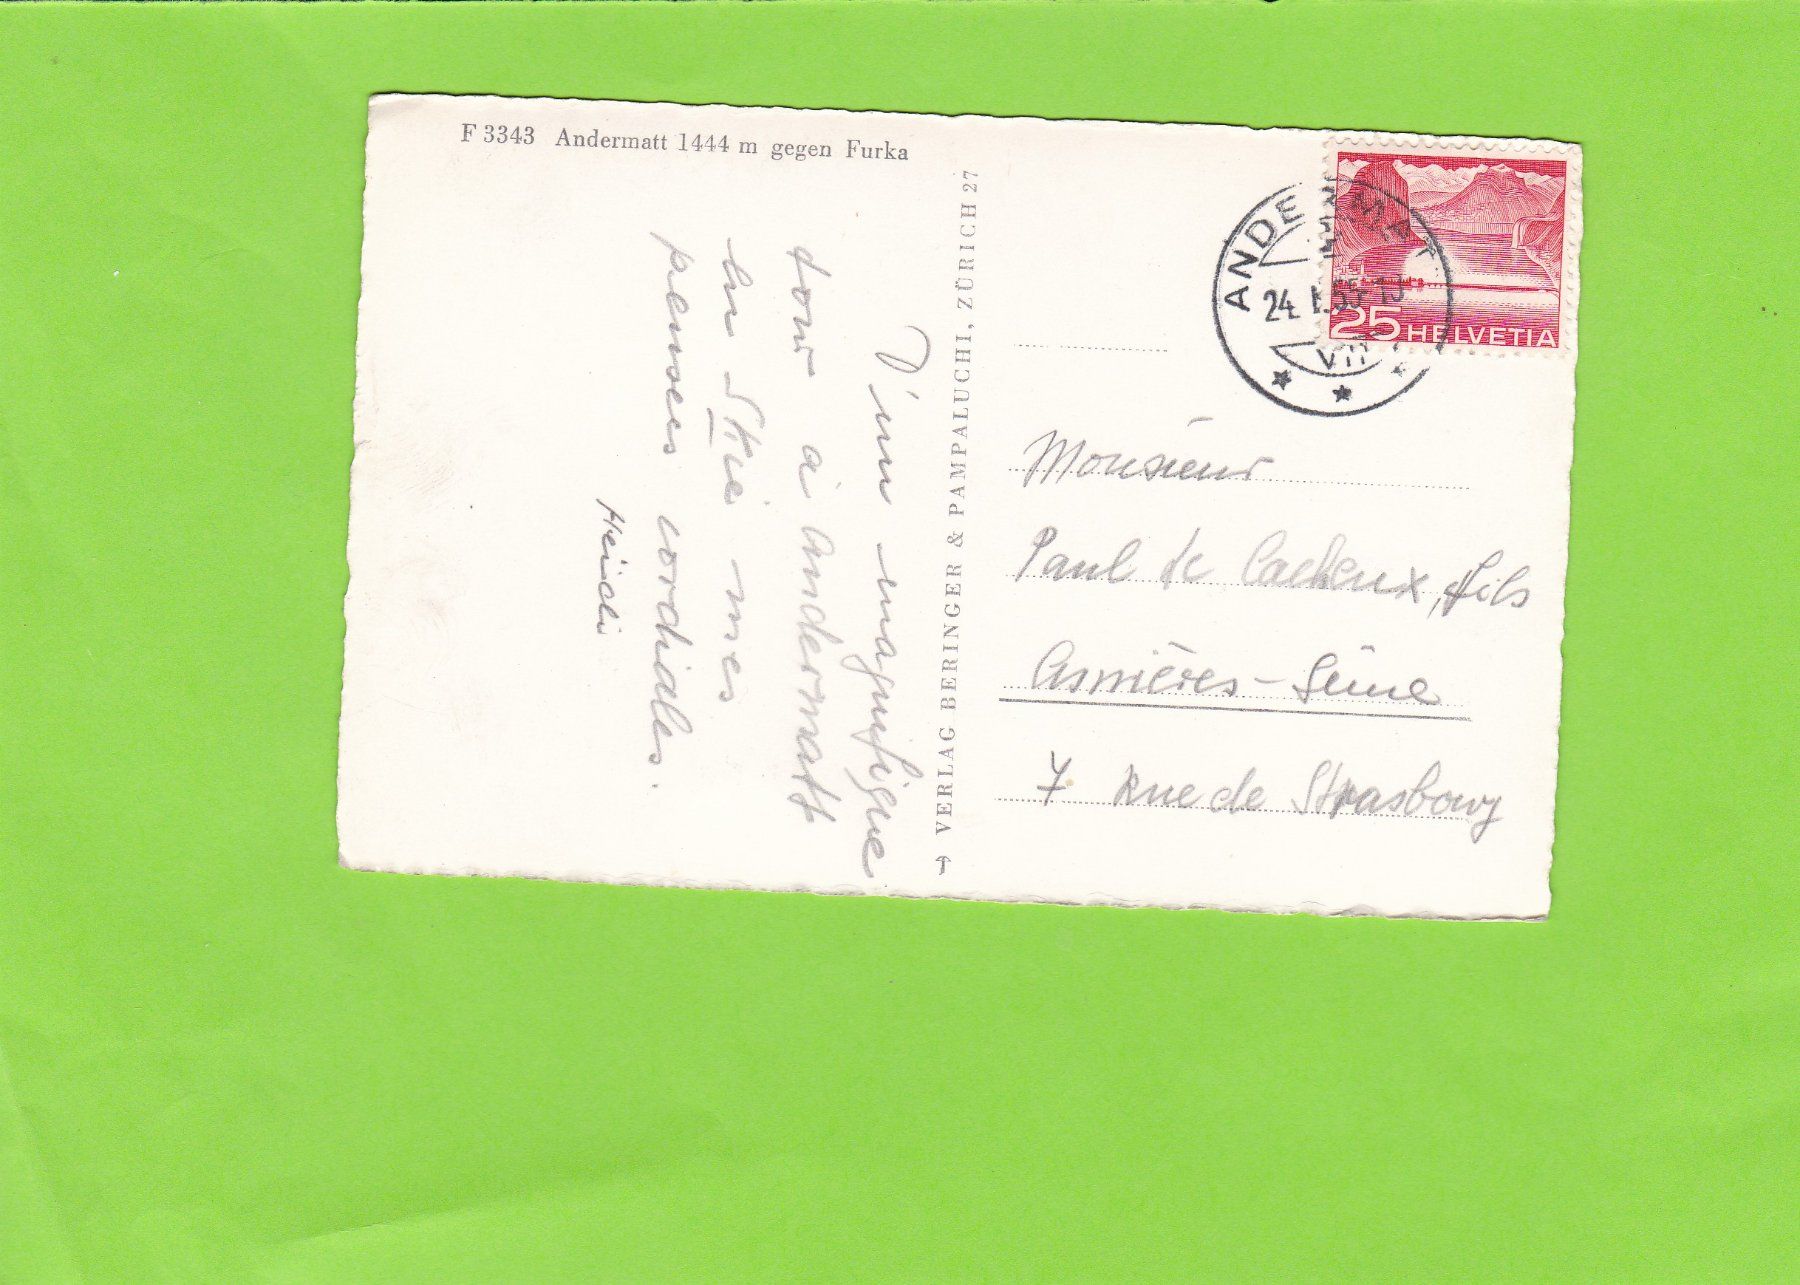 F 3343 Andermatt 1444 m gegen Furka
D'une magnifique
tour à Andermatt
en Skie mes
pensées cordiales.
Heidi
VERLAG BERINGER & PAMPALUCHI, ZÜRICH 27
ANDERMATT
24. I. 55-19
VII
25 HELVETIA
Monsieur
Paul de Cacheux, fils
Asnières - Seine
7 Rue de Strasbourg